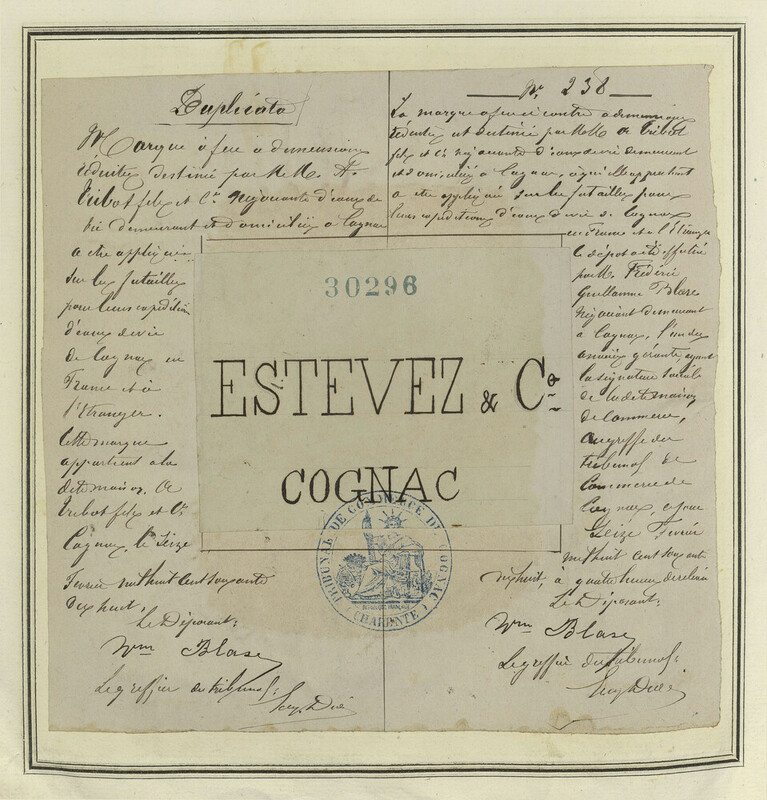 Duplicata
Marque à feu à dimensions
réduites destinée par M M. A.
Tribot fils et Cie Négociants d'eaux de
vie demeurant et domiciliés à Cognac
a être appliquée
sur les futailles
pour leurs expéditions
d'eaux de vie
de Cognac en
France et à
l'Etranger.
Cette marque
appartient à la
dite maison, A
Tribot fils et Cie
Cognac, le Seize
Fevrier mil huit cent soixante
dix huit,
Le Déposant:
Wm Blase
Le greffier du tribunal:
No 238
La marque à feu ci contre a dimensions
réduites est destinée par MM A Tribot
fils et Cie négociants d'eaux de vie demeurant
et domiciliés à Cognac, à qui elle appartient
a etre appliquée sur les futailles pour
leurs expéditions d'eaux de vie de Cognac
en France et à l'Etranger
le dépot a été effectué
par M. Frédéric
Guillaume Blase
Négociant demeurant
à Cognac, l'un des
associés gérants, ayant
la signature sociale
de la dite maison
de Commerce,
au greffe du
tribunal de
Commerce de
Cognac, ce jour
Seize Fevrier
mil huit cent soixante
dix huit, à quatre heures de relevée
Le Déposant:
Wm Blase
Le greffier du tribunal:
30296
ESTEVEZ & Co.
COGNAC
TRIBUNAL DE COMMERCE DE COGNAC
(CHARENTE)
REPUBLIQUE FRANÇAISE